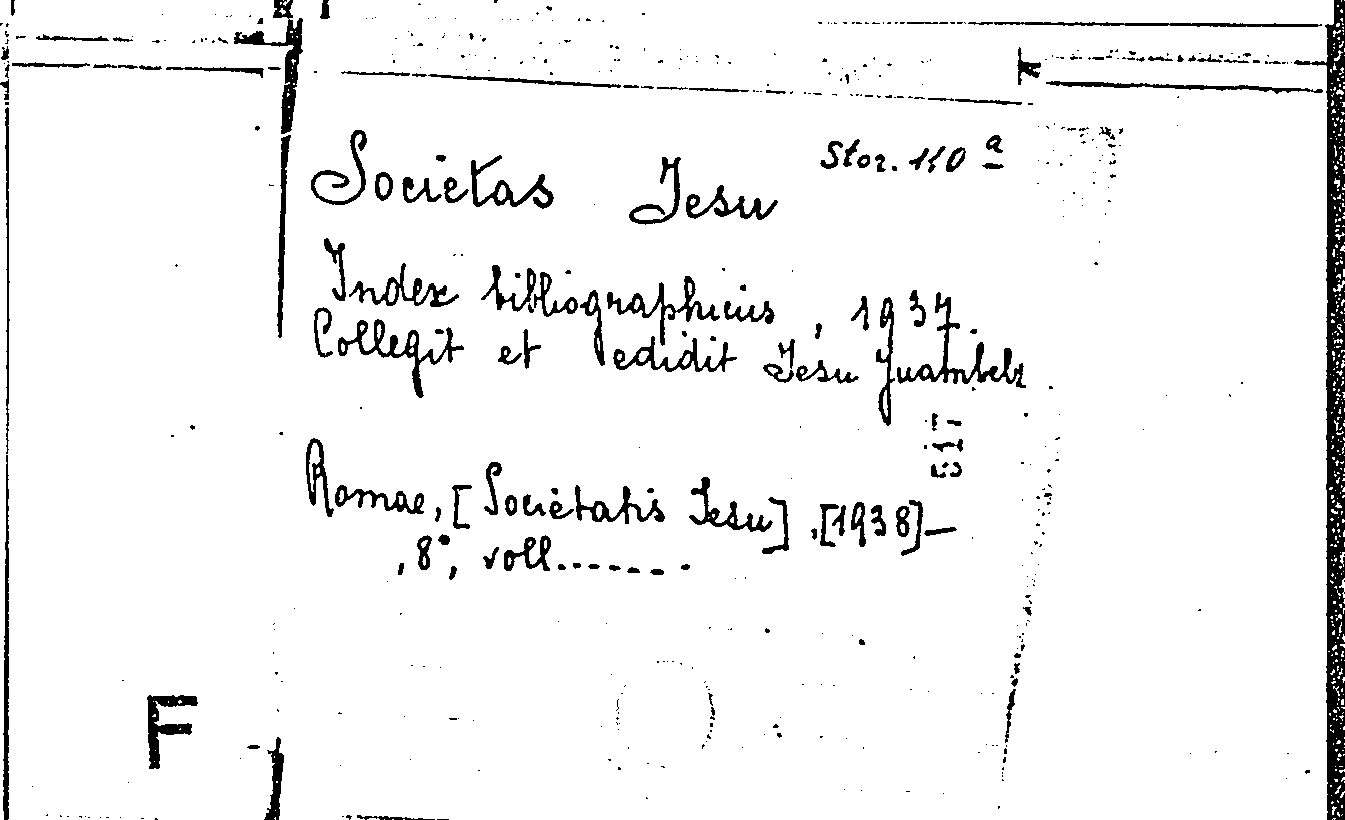 Stor. 110 a
Societas Jesu
Index bibliographicus, 1937.
Collegit et edidit Jesu Juambelz
517
Romae, [Societatis Jesu], [1938]—
, 8°, voll.......
F